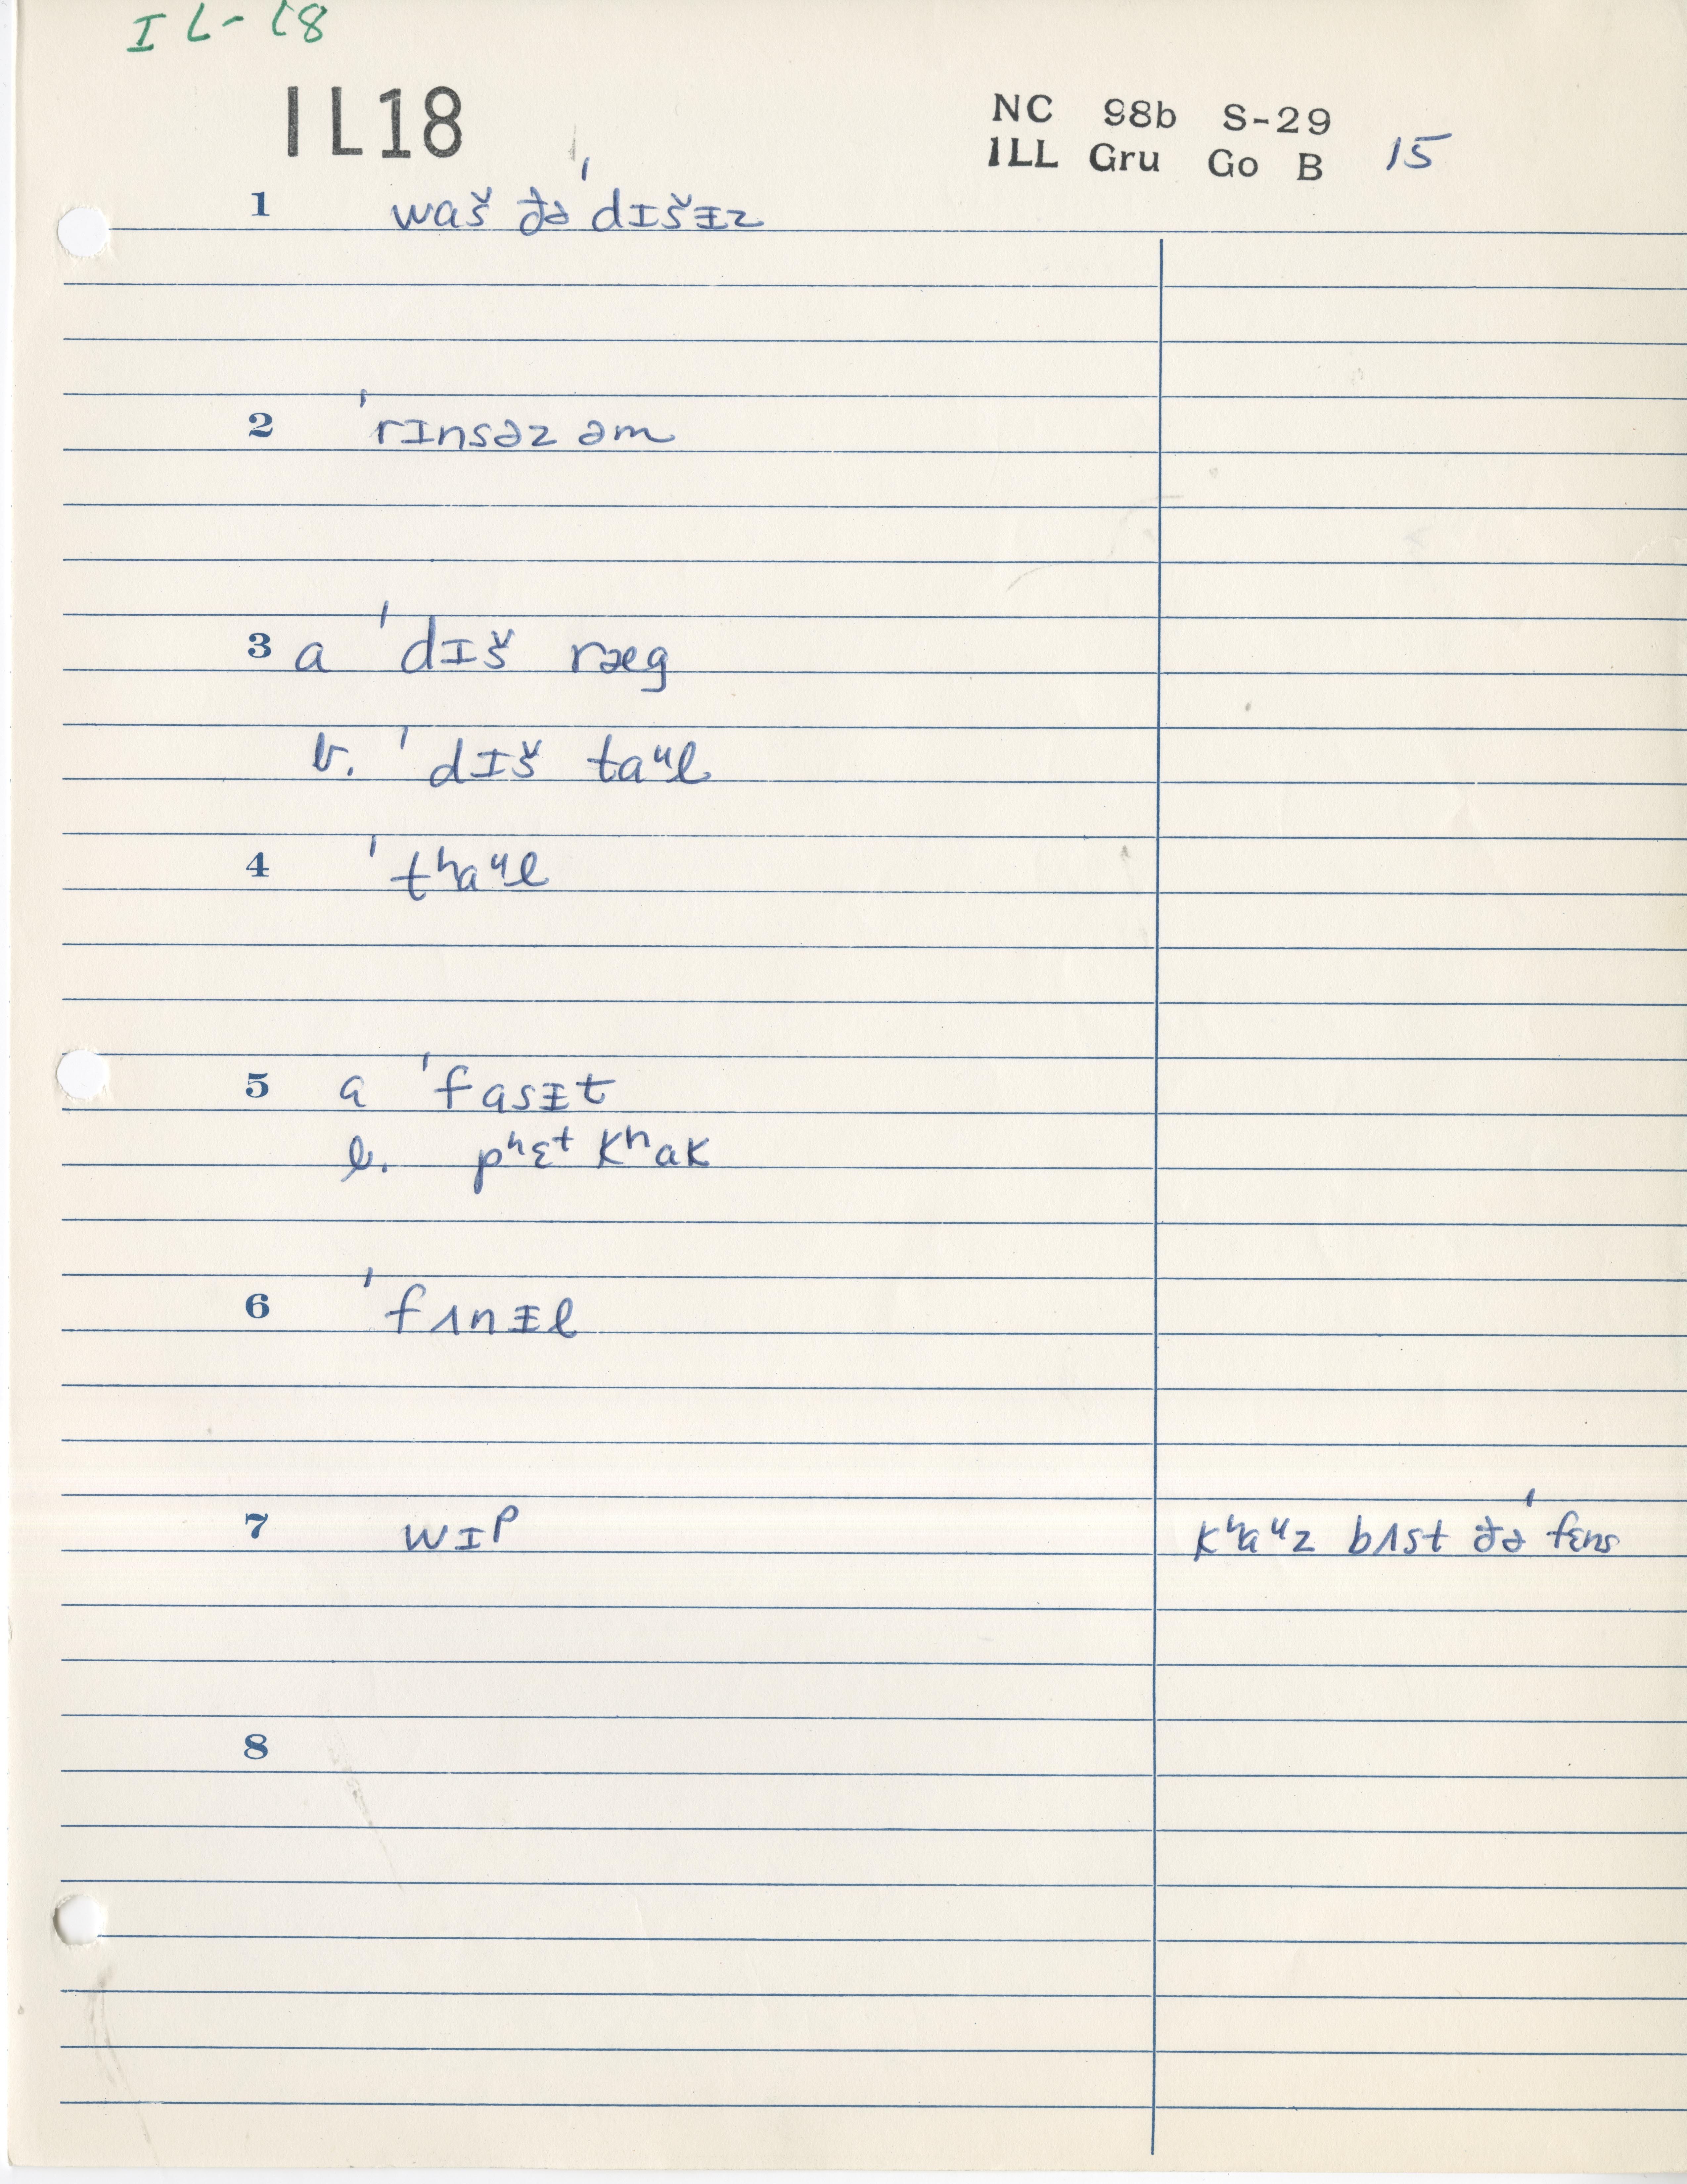 IL-18
IL18
NC 98b S-29
ILL Gru Go B 15
1 waš ðə ˈdɪšᵻz
2 ˈrɪnsəz əm
3 a ˈdɪš ræg
b. ˈdɪš taᵘl
4 ˈtʰaᵘl
5 a ˈfasᵻt
b. pʰɛᵗ kʰak
6 ˈfʌnᵻl
7 wɪp kʰaᵘz bʌst ðə ˈfɛns
8